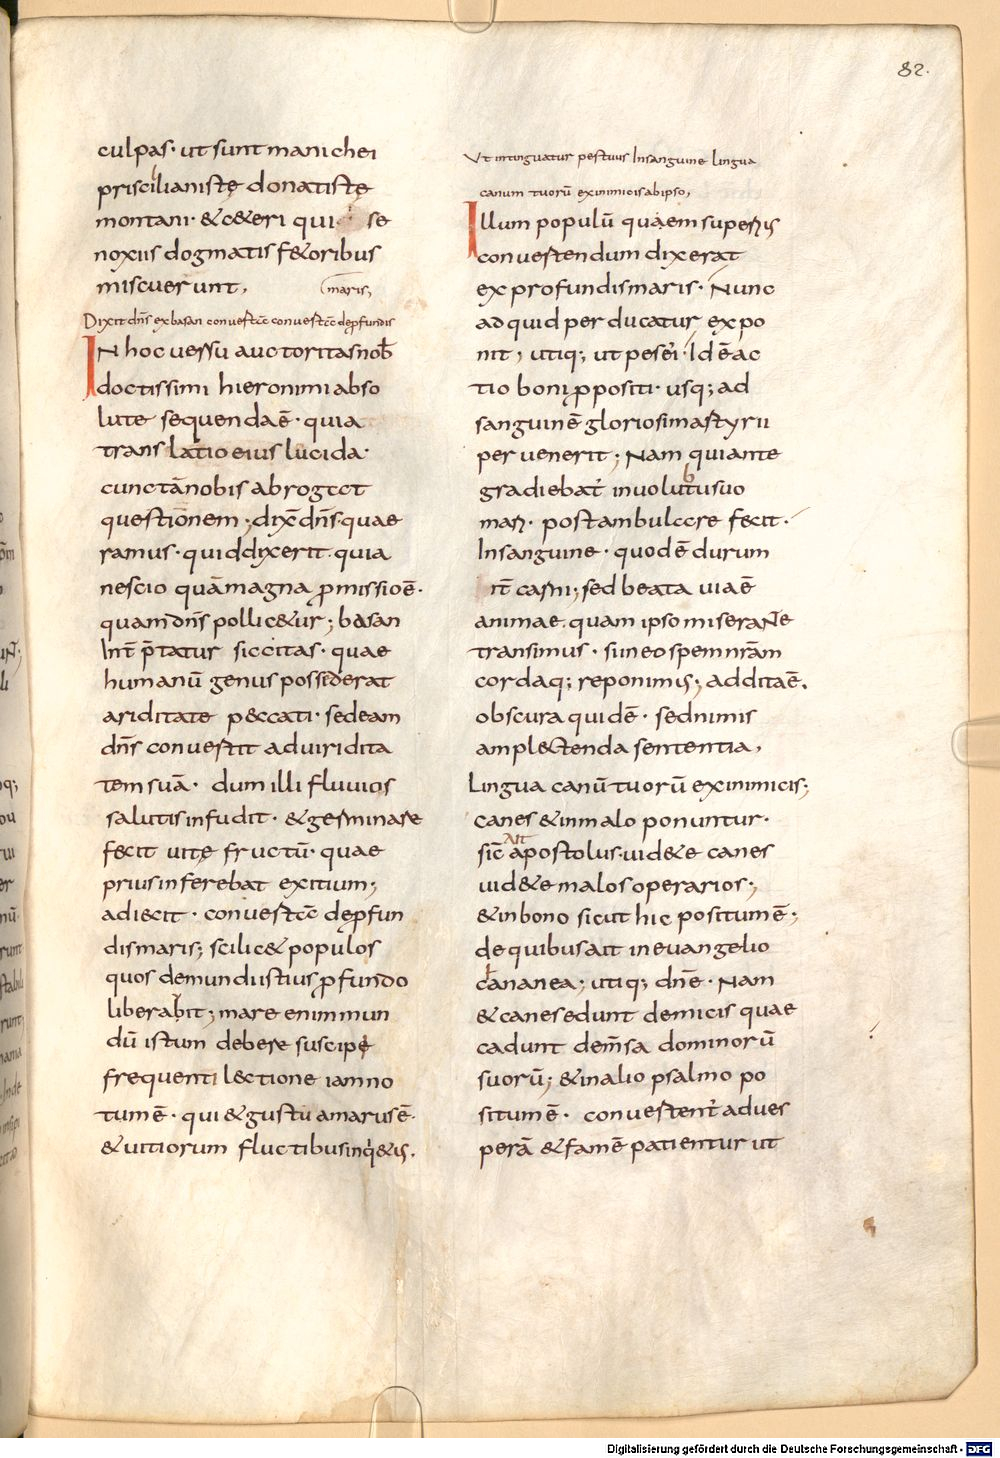 82.
culpas· ut sunt manichei
priscilianistę donatistę
montani· & c&eri qui se
noxiis dogmatis f&oribus
miscuerunt,
maris,
Dixit dn̄s ex basan convertā convertā de ꝓfundis
IN hoc versu auctoritas nob̄
doctissimi hieronimi abso
lute sequenda ē· quia
translatio eius lucida·
cunctā nobis abrogat
questionem; dix̄ dn̄s· quae
ramus· quid dixerit· quia
nescio quā magna ꝓmissio ē·
quam dn̄s pollic&ur; basan
Int̄ p̄tatur siccitas· quae
humanū genus possiderat
ariditate peccati· sed eam
dn̄s convertit ad viridita
tem suā· dum illi fluvios
salutis infudit· & germinare
fecit vitę fructū· quae
prius inferebat exitium;
adiecit· convertā de ꝓfun
dis maris; scilic& populos
quos de mundi istius ꝓfundo
liberabit; mare enim mun
dū istum debere suscipi
frequenti lectione iam no
tum ē· qui & gustu amarus ē·
& vitiorum fluctibus inq&is.
Ut intinguatur pes tuus In sanguine lingua
canum tuorū ex inimicis ab ipso,
Illum populū quaem superius
convertendum dixerat
ex profundis maris· Nunc
ad quid perducatur expo
nit, utiq; ut pes ei· Id ē ac
tio boni ꝓpositi· usq; ad
sanguinē gloriosi martyrii
pervenerit; Nam qui ante
gradiebat̄ in volutabus suo
mar̄· post ambulare fecit·
In sanguine· quod ē durum
int̄ carni; sed beata via ē
animae, quam ipso miserante
transimus· si in eo spem nr̄am
cordaq; reponimus; addita ē,
obscura quidē· sed nimis
amplectenda sententia,
Lingua canū tuorū ex inimicis;
canes & in malo ponuntur·
sic̄ ait apostolus· vid&e canes
vid&e malos operarios;
& in bono sicut hic positum ē;
de quibus ait in evangelio
chananea; utiq; dn̄e· Nam
& canes edunt de micis quae
cadunt de m̄sa dominorū
suorū; & in alio psalmo po
situm ē· convertent̄ ad ves
perā & famē patientur ut
Digitalisierung gefördert durch die Deutsche Forschungsgemeinschaft - DFG